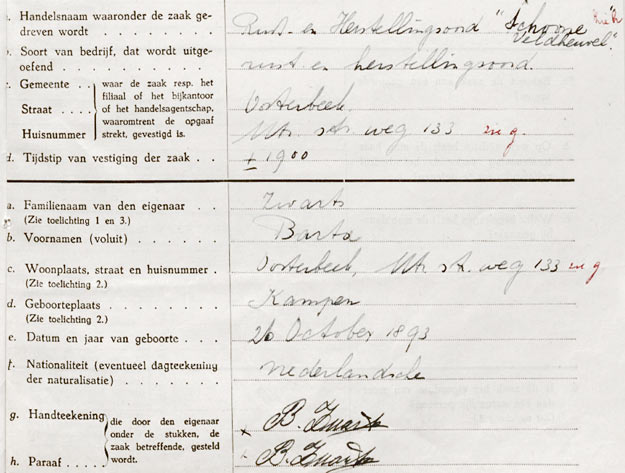 a. Handelsnaam waaronder de zaak ge-
dreven wordt . . . . . . Rust- en Herstellingsoord "Schoone
Veldheuvel".
b. Soort van bedrijf, dat wordt uitge-
oefend . . . . . . . . rust en herstellingsoord.
c. Gemeente . . waar de zaak resp. het
filiaal of het bijkantoor Oosterbeek.
Straat . . . . of het handelsagentschap,
waaromtrent de opgaaf
Huisnummer strekt, gevestigd is. Utr. str. weg 133
d. Tijdstip van vestiging der zaak . . ± 1900
a. Familienaam van den eigenaar . . Zwarts
(Zie toelichting 1 en 3.)
b. Voornamen (voluit) . . . . . . Barta
c. Woonplaats, straat en huisnummer . Oosterbeek, Utr. str. weg 133
(Zie toelichting 2.)
d. Geboorteplaats . . . . . . Kampen
(Zie toelichting 2.)
e. Datum en jaar van geboorte . . . 26 October 1893
f. Nationaliteit (eventueel dagteekening
der naturalisatie) . . . . . . nederlandsche
g. Handteekening die door den eigenaar B. Zwarts
onder de stukken, de
zaak betreffende, gesteld
h. Paraaf . . . . wordt. B. Zwarts